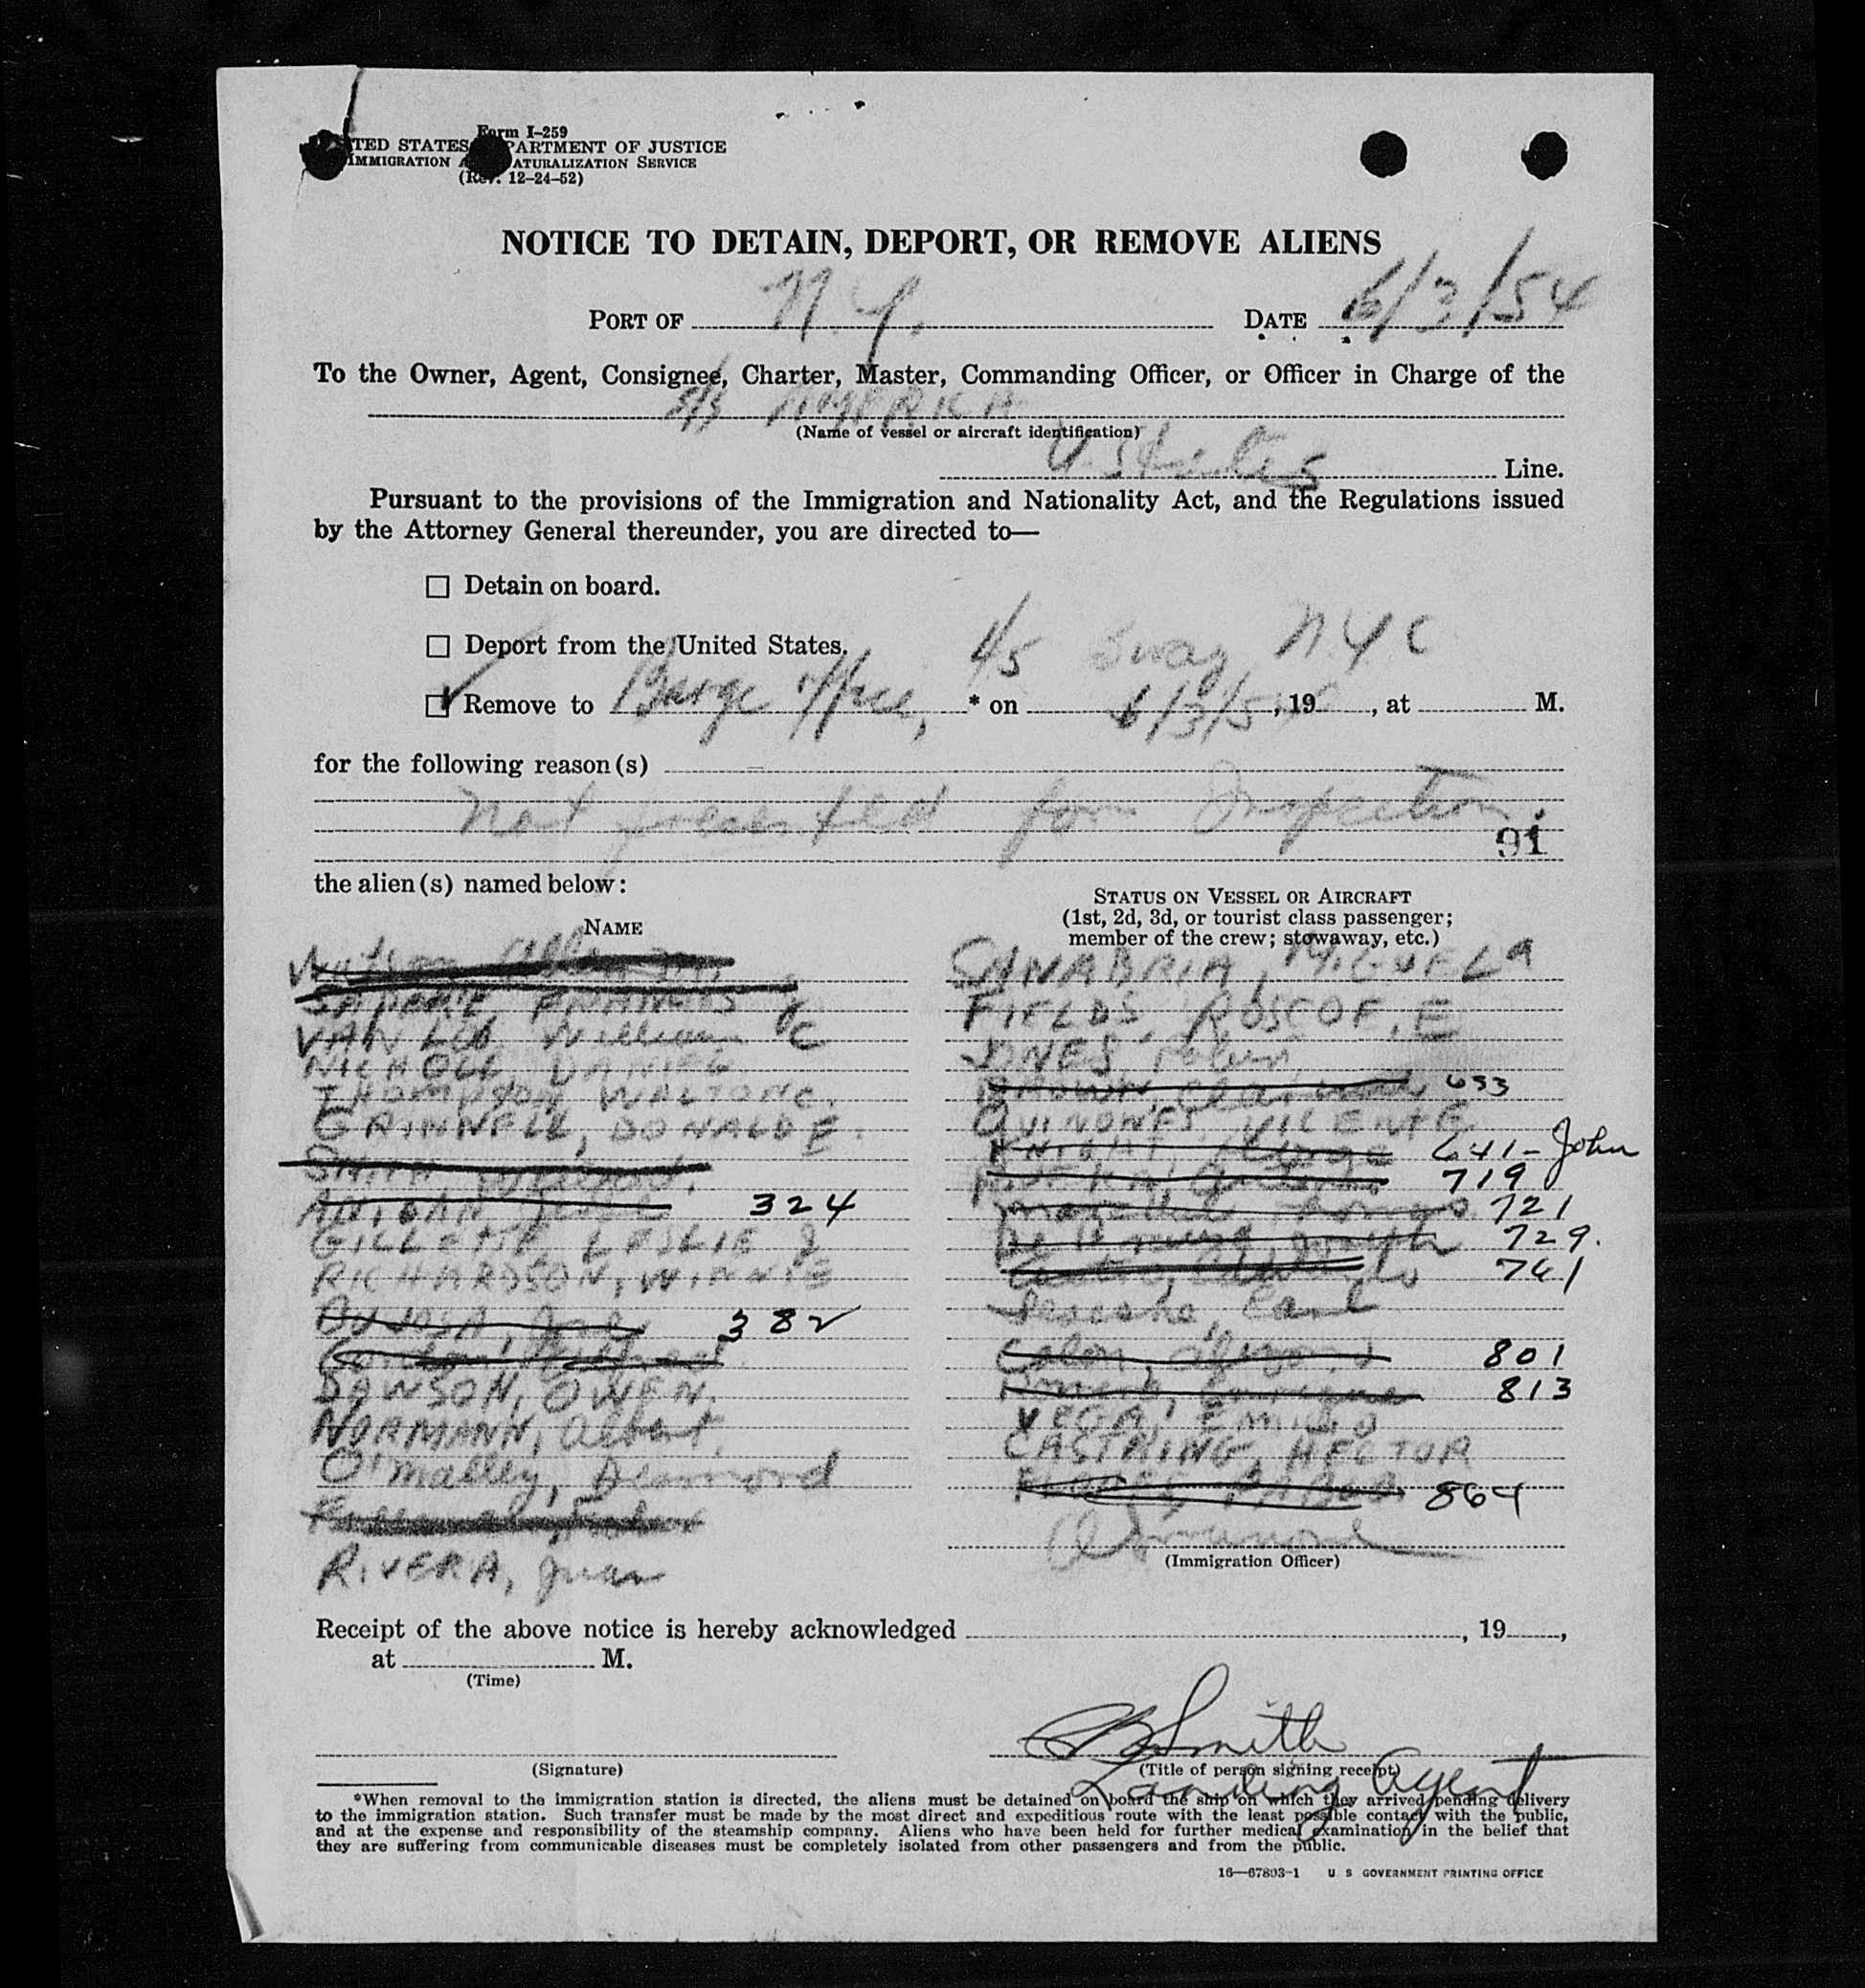 Form I-259
TED STATES PARTMENT OF JUSTICE
IMMIGRATION A ATURALIZATION SERVICE
(Rev. 12-24-52)
NOTICE TO DETAIN, DEPORT, OR REMOVE ALIENS
PORT OF N.Y. DATE 6/3/54
To the Owner, Agent, Consignee, Charter, Master, Commanding Officer, or Officer in Charge of the
S/S AMERICA
(Name of vessel or aircraft identification)
U States Line.
Pursuant to the provisions of the Immigration and Nationality Act, and the Regulations issued
by the Attorney General thereunder, you are directed to—
Detain on board.
Deport from the United States. NYC
Remove to Barge Office, * on 6/3/54, 19, at M.
for the following reason(s)
Not presented for Inspection.
91
the alien(s) named below:
STATUS ON VESSEL OR AIRCRAFT
(1st, 2d, 3d, or tourist class passenger;
member of the crew; stowaway, etc.)
NAME
Watson
VAN William
NICHOLL, DANIEL
THOMPSON WALTON C.
GRINNELL, DONALD E.
SMITH,
324
GILLETTE, LESLIE J
RICHARDSON, WINNIE
382
Gordon,
DAWSON, OWEN.
NORMANN, Albert.
O'Malley, Desmond
RIVERA, Juan
SANABRIA, MIGUELA
FIELDS, ROSCOE, E
JONES,
BROWN, 633
QUINONES, VICENTE
KNIGHT George 641-John
RIVERA, 719
721
729.
761
Earl
Colon, 801
813
VEGA, EMILIO
CASTRING, HECTOR
FLORES, PABLO 864
(Immigration Officer)
Receipt of the above notice is hereby acknowledged , 19 ,
at M.
(Time)
Smith
(Signature) (Title of person signing receipt)
Landing Agent
*When removal to the immigration station is directed, the aliens must be detained on board the ship on which they arrived pending delivery
to the immigration station. Such transfer must be made by the most direct and expeditious route with the least possible contact with the public,
and at the expense and responsibility of the steamship company. Aliens who have been held for further medical examination in the belief that
they are suffering from communicable diseases must be completely isolated from other passengers and from the public.
16—67803-1 U. S GOVERNMENT PRINTING OFFICE